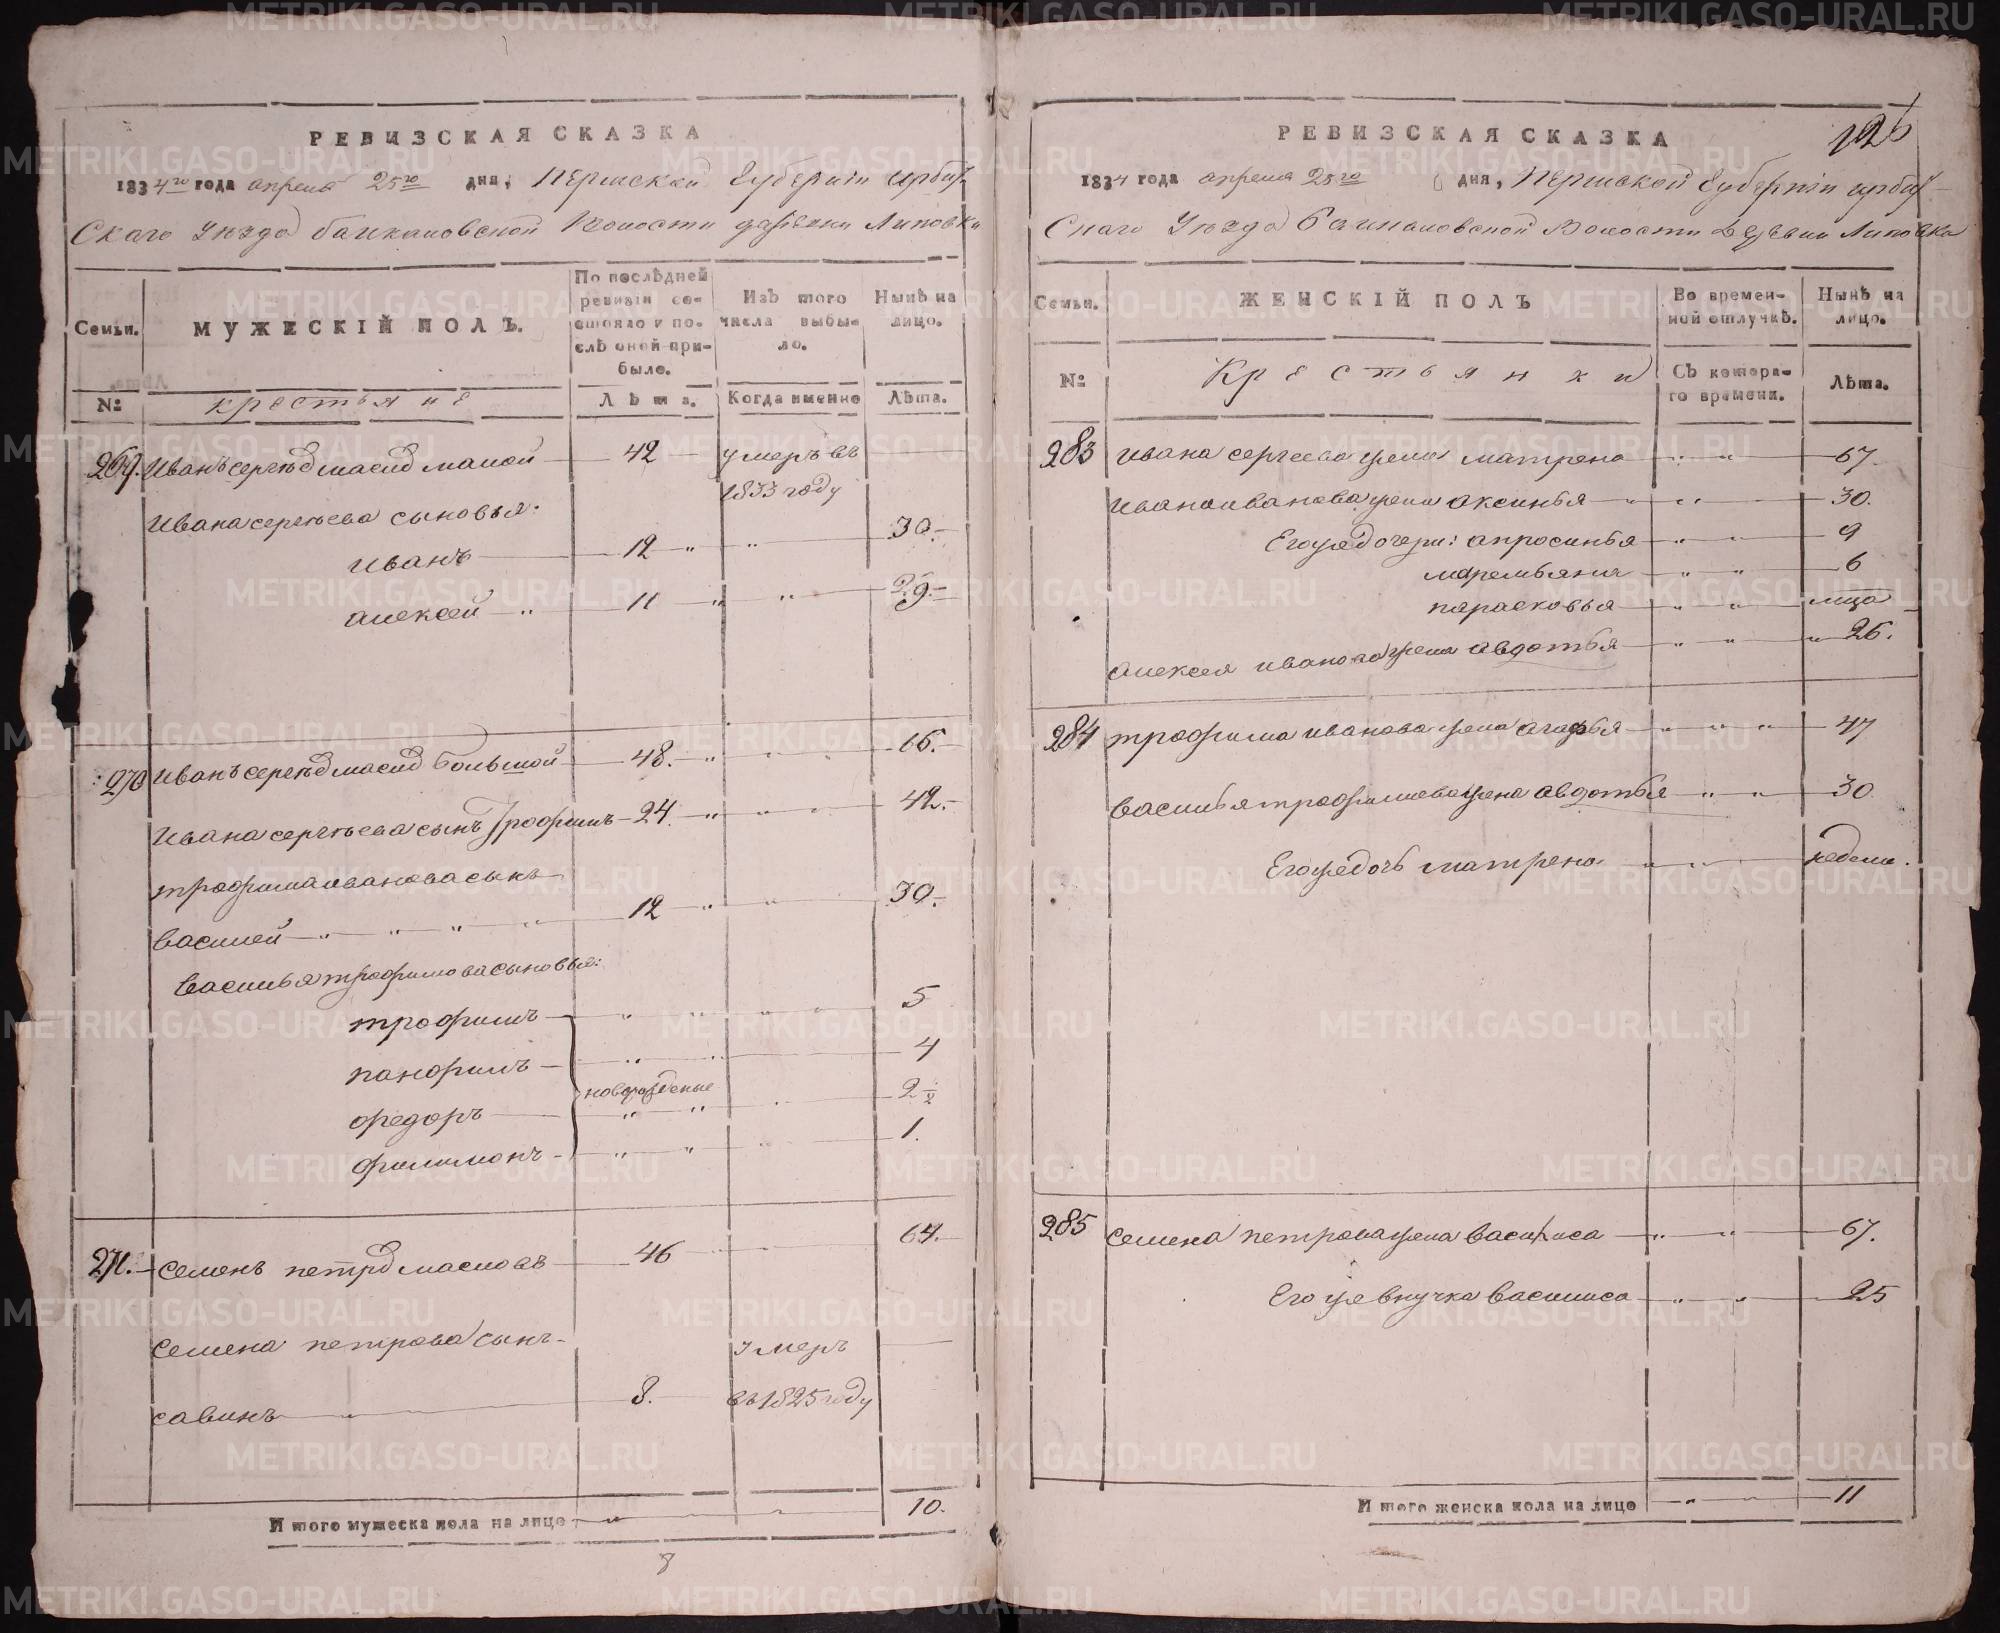 РЕВИЗСКАЯ СКАЗКА
1834го года апреля 25го дня, Пермской Губернiи ирбит-
Скаго Уезда баикаловской Волости деревни Липовки
Семьи.
МУЖЕСКIЙ ПОЛЪ.
По послѣдней ревизiи состояло и послѣ оной прибыло.
Изъ того числа выбыло.
Нынѣ на лицо.
№
крестьяне
Лѣта.
Когда именно
Лѣта.
269. Иванъ сергѣевъ масловъ малой 42 умеръ въ
1833 году
Ивана сергѣева сыновья:
иванъ 12 " " 30.
алексей " 11 " " 29.
270 Иванъ сергѣевъ масловъ большой 48. " " 66.
Ивана сергѣева сынъ Трофимъ 24. " " 42.
трофима иванова сынъ
василей " " " " 12 " " 30.
василья трофимова сыновья:
трофимъ " " " " 5
панфилъ " " 4
новорожденые
федоръ " " " 2 ½
филимонъ " " " 1.
271. семенъ петровъ масловъ 46 64.
семена петрова сынъ умеръ
савинъ " 8. въ 1825 году
И того мужеска пола на лицо " " 10.
8
РЕВИЗСКАЯ СКАЗКА
126
1834 года апреля 25го дня, Пермской Губернiи ирбит-
Скаго Уезда Баикаловской Волости Деревни Липовки
Семьи.
ЖЕНСКIЙ ПОЛЪ
Во временной отлучкѣ.
Нынѣ на лицо.
№
Крестьянки
Съ котораго времени.
Лѣта.
283 ивана сергеева жена матрена " " 67.
ивана иванова жена аксинья " " " 30.
Его же дочери: апросинья " " 9
маремьяна " " 6
парасковья " "
алексея иванова жена авдотья " " " 26.
284 трофима иванова жена агафья " " " 47
василья трофимова жена авдотья " " 30.
Его же дочь матрена " " недели.
285 семена петрова жена василиса " " 67.
Его же внучка василиса " " 25
И того женска пола на лицо " " 11
METRIKI.GASO-URAL.RU